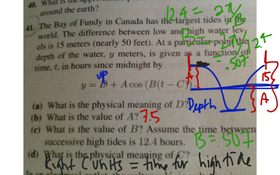 40. What is the
around the earth?
12.4 = 2π/B
41. The Bay of Fundy in Canada has the largest tides in the
world. The difference between low and high water lev-
els is 15 meters (nearly 50 feet). At a particular point the
depth of the water, y meters, is given as a function of
time, t, in hours since midnight by
up
y = D + A cos (B(t − C))
A
15
A
Depth
.507
(a) What is the physical meaning of D?
(b) What is the value of A? 7.5
(c) What is the value of B? Assume the time between
successive high tides is 12.4 hours.
B = .507
(d) What is the physical meaning of C?
Right C units = time for high tide